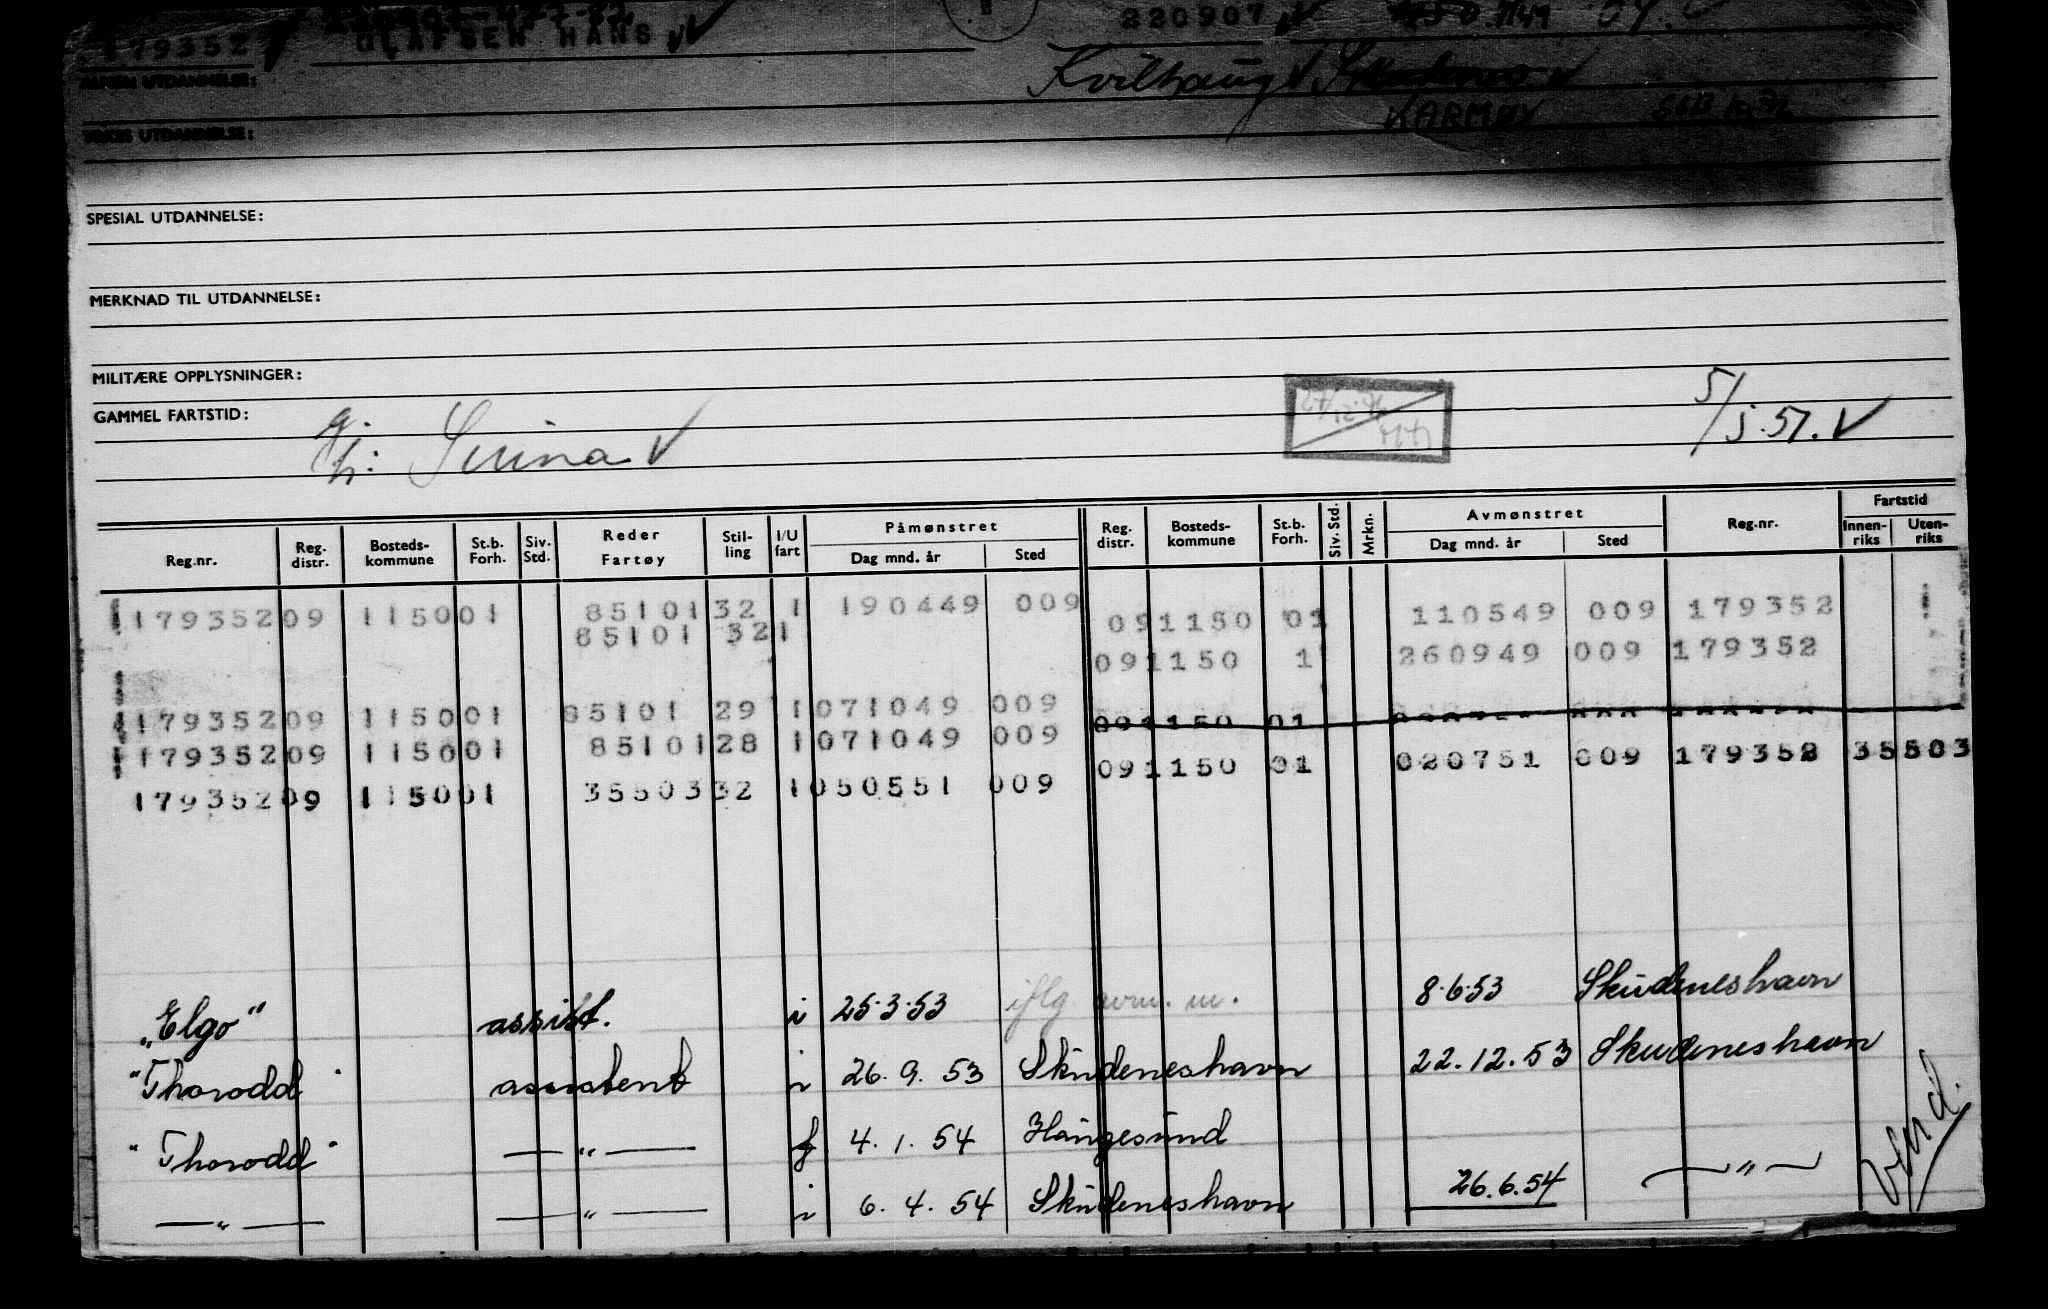 179352 OLAFSEN HANS 220907
ALMEN UTDANNELSE: Kvilhaug
YRKES UTDANNELSE: KARMØY
SPESIAL UTDANNELSE:
MERKNAD TIL UTDANNELSE:
MILITÆRE OPPLYSNINGER:
GAMMEL FARTSTID: 5/5.51.
Reg.nr. Reg. distr. Bosteds-kommune St.b. Forh. Siv. Std. Reder Fartøy Stil-ling I/U fart Påmønstret Dag mnd. år Sted Reg. distr. Bosteds-kommune St.b. Forh. Siv. Std. Mrkn. Avmønstret Dag mnd. år Sted Reg.nr. Fartstid Innen-riks Uten-riks
179352 09 1150 01 85101 32 1 190449 009 09 1150 01 110549 009 179352
85101 32 1 09 1150 1 260949 009 179352
179352 09 1150 01 85101 29 1 071049 009 09 1150 01
179352 09 1150 01 85101 28 1 071049 009 09 1150 01 020751 009 179352 35503
179352 09 1150 01 35503 32 1 050551 009
"Elgo" assist. i 25.3.53 iflg. avm. m. 8.6.53 Skudeneshavn
"Thorodd" assistent i 26.9.53 Skudeneshavn 22.12.53 Skudeneshavn
"Thorodd" — " — f 4.1.54 Haugesund
— " — — " — i 6.4.54 Skudeneshavn 26.6.54 — " —